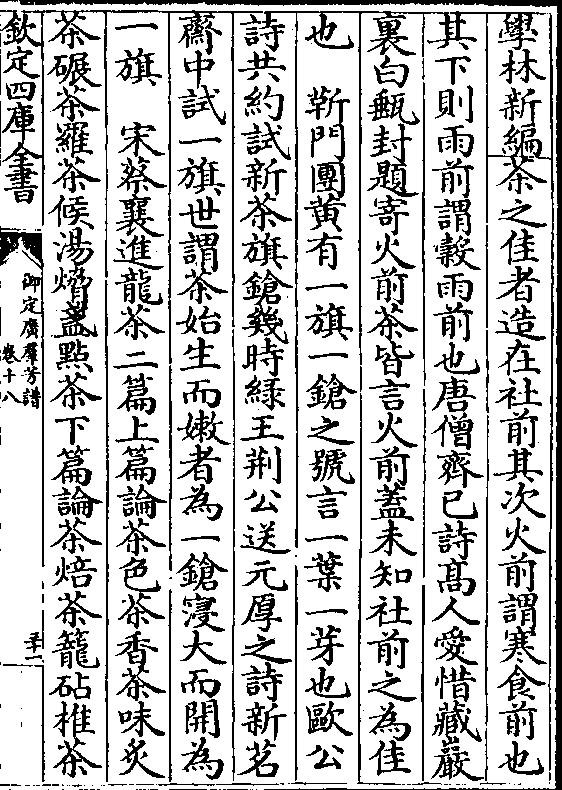 學林新編茶之佳者造在社前其次火前謂寒食前也
其下則雨前謂穀雨前也唐僧齊已詩髙人愛惜藏巖
裏白甀封題寄火前茶皆言火前蓋未知社前之為佳
也　蘄門團黄有一旗一鎗之號言一葉一芽也歐公
詩共約試新茶旗鎗幾時緑王荆公送元厚之詩新茗
齋中試一旗世謂茶始生而嫩者為一鎗寖大而開為
一旗　宋蔡襄進龍茶二篇上篇論茶色茶香茶味炙
茶碾茶羅茶候湯熁盞點茶下篇論茶焙茶籠砧椎茶
欽定四庫全書
御定廣羣芳譜
卷十八